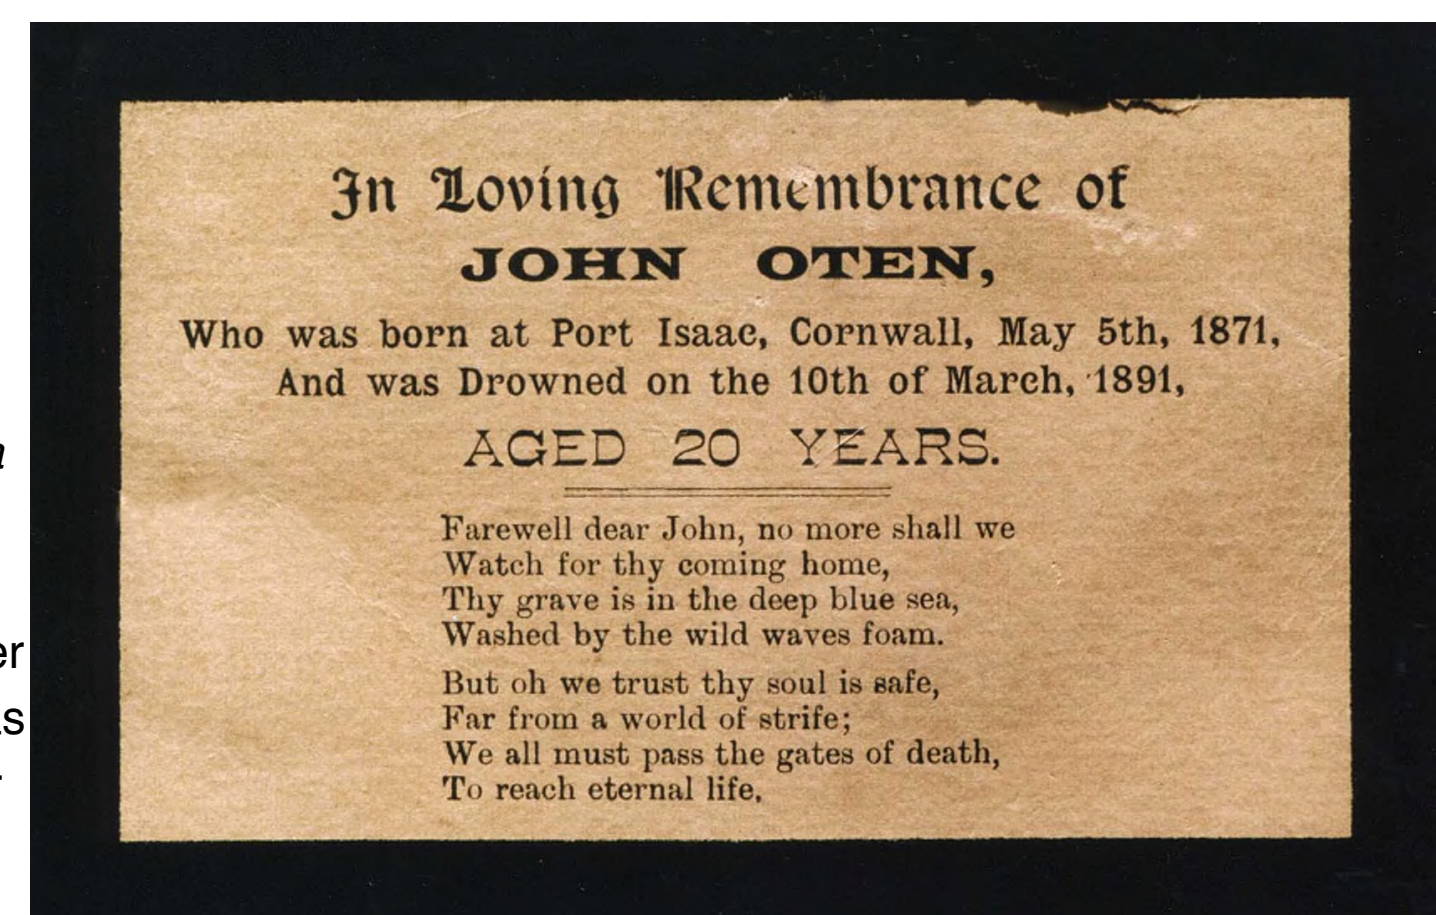 In Loving Remembrance of
JOHN OTEN,
Who was born at Port Isaac, Cornwall, May 5th, 1871,
And was Drowned on the 10th of March, 1891,
AGED 20 YEARS.
Farewell dear John, no more shall we
Watch for thy coming home,
Thy grave is in the deep blue sea,
Washed by the wild waves foam.
But oh we trust thy soul is safe,
Far from a world of strife;
We all must pass the gates of death,
To reach eternal life.